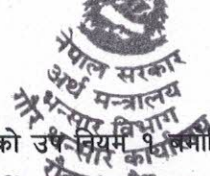 नेपाल सरकार
अर्थ मन्त्रालय
भन्सार विभाग
गौर भन्सार कार्यालय
को उप नियम १ बमो